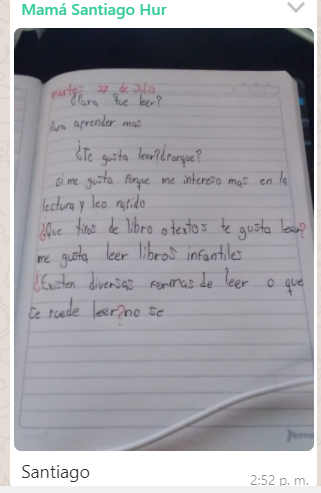 Mamá Santiago Hur
martes 27 de Julio
¿Para que leer?
Para aprender mas
¿Te gusta leer?¿Porque?
si me gusta Porque me intereso mas en la
lectura y leo rapido
¿Que tipos de libro o textos te gusta leer?
me gusta leer libros infantiles
¿Existen diversas formas de leer o que
se puede leer?no se
Norma
Santiago
2:52 p. m.